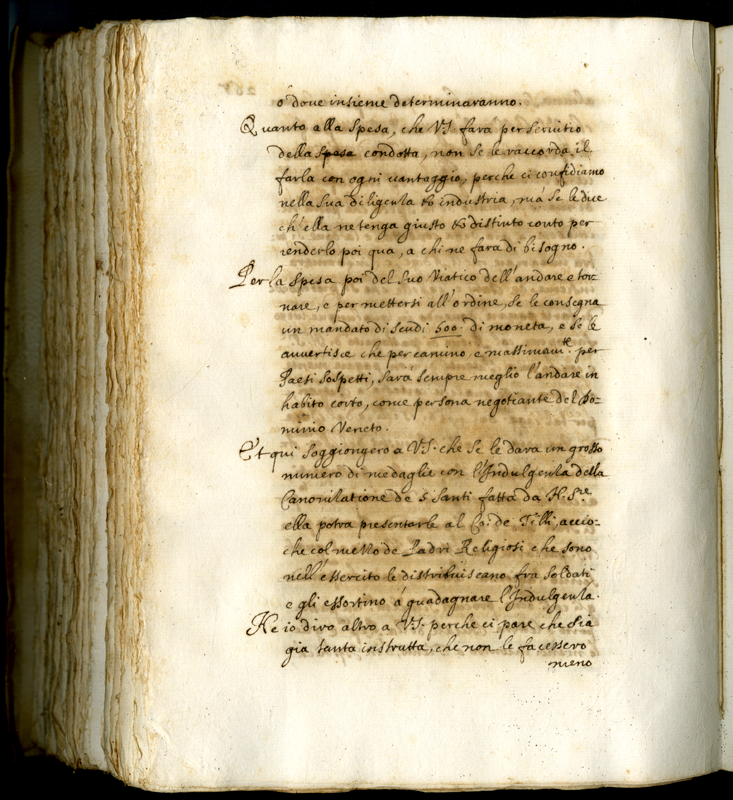 ó doue insieme determinaranno.
Quanto alla spesa, che VS. fara per seruitio
della spesa condotta, non se le raccorda il
farla con ogni uantaggio, perche ci confidiamo
nella sua diligenza et industria, má se le dice
ch'ella ne tenga giusto et distinto conto per
renderlo poi qua, a chi ne fara di bisogno.
Per la spesa poi del suo Viatico dell'andare e tor=
nare, e per mettersi all'ordine, se le consegna
un mandato di scudi 500. di moneta, e se le
auuertisce che per camino, e massimam.te per
Paesi sospetti, sará sempre meglio l'andare in
habito corto, come persona negotiante del Do=
minio Veneto.
Et qui soggiongero a VS. che se le dara un grosso
numero di medaglie con l'Indulgenza della
Canonizatione de 5 Santi fatta da N. S.re
ella potra presentarle al Co: de Tilli, accio=
che col mezzo de Padri Religiosi che sono
nell'essercito le distribuiscano fra soldati
e gli essortino á guadagnare l'Indulgenza.
Ne io diro altro a VS. perche ci pare che sia
gia tanto instrutta, che non le facessero
meno